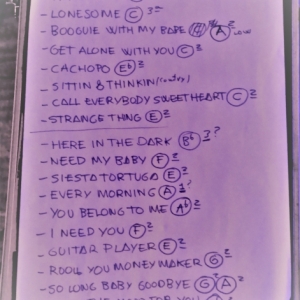 - LONESOME C 3=
- BOOGUIE WITH MY BABE A 2=
- GET ALONE WITH YOU C 2
- CACHOPO Eb 2
- SITTIN & THINKIN
- CALL EVERYBODY SWEETHEART C 2
- STRANGE THING E 2
- HERE IN THE DARK Bb 3?
- NEED MY BABY F 2
- SIESTA TORTUGA E 2
- EVERY MORNING A ?
- YOU BELONG TO ME Ab 2
- I NEED YOU F 2
- GUITAR PLAYER E 2
- YOU MONEY MAKER G 2
- SO LONG BABY GOODBYE G 2 A 2
FOR YOU